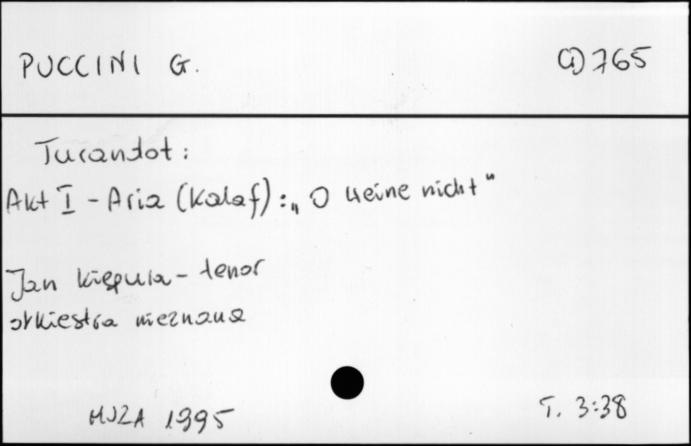 PUCCINI G. CD 765
Turandot:
Akt I - Aria (Kalaf): „O weine nicht"
Jan Kiepura - tenor
orkiestra nieznana
MUZA 1995 T. 3:38